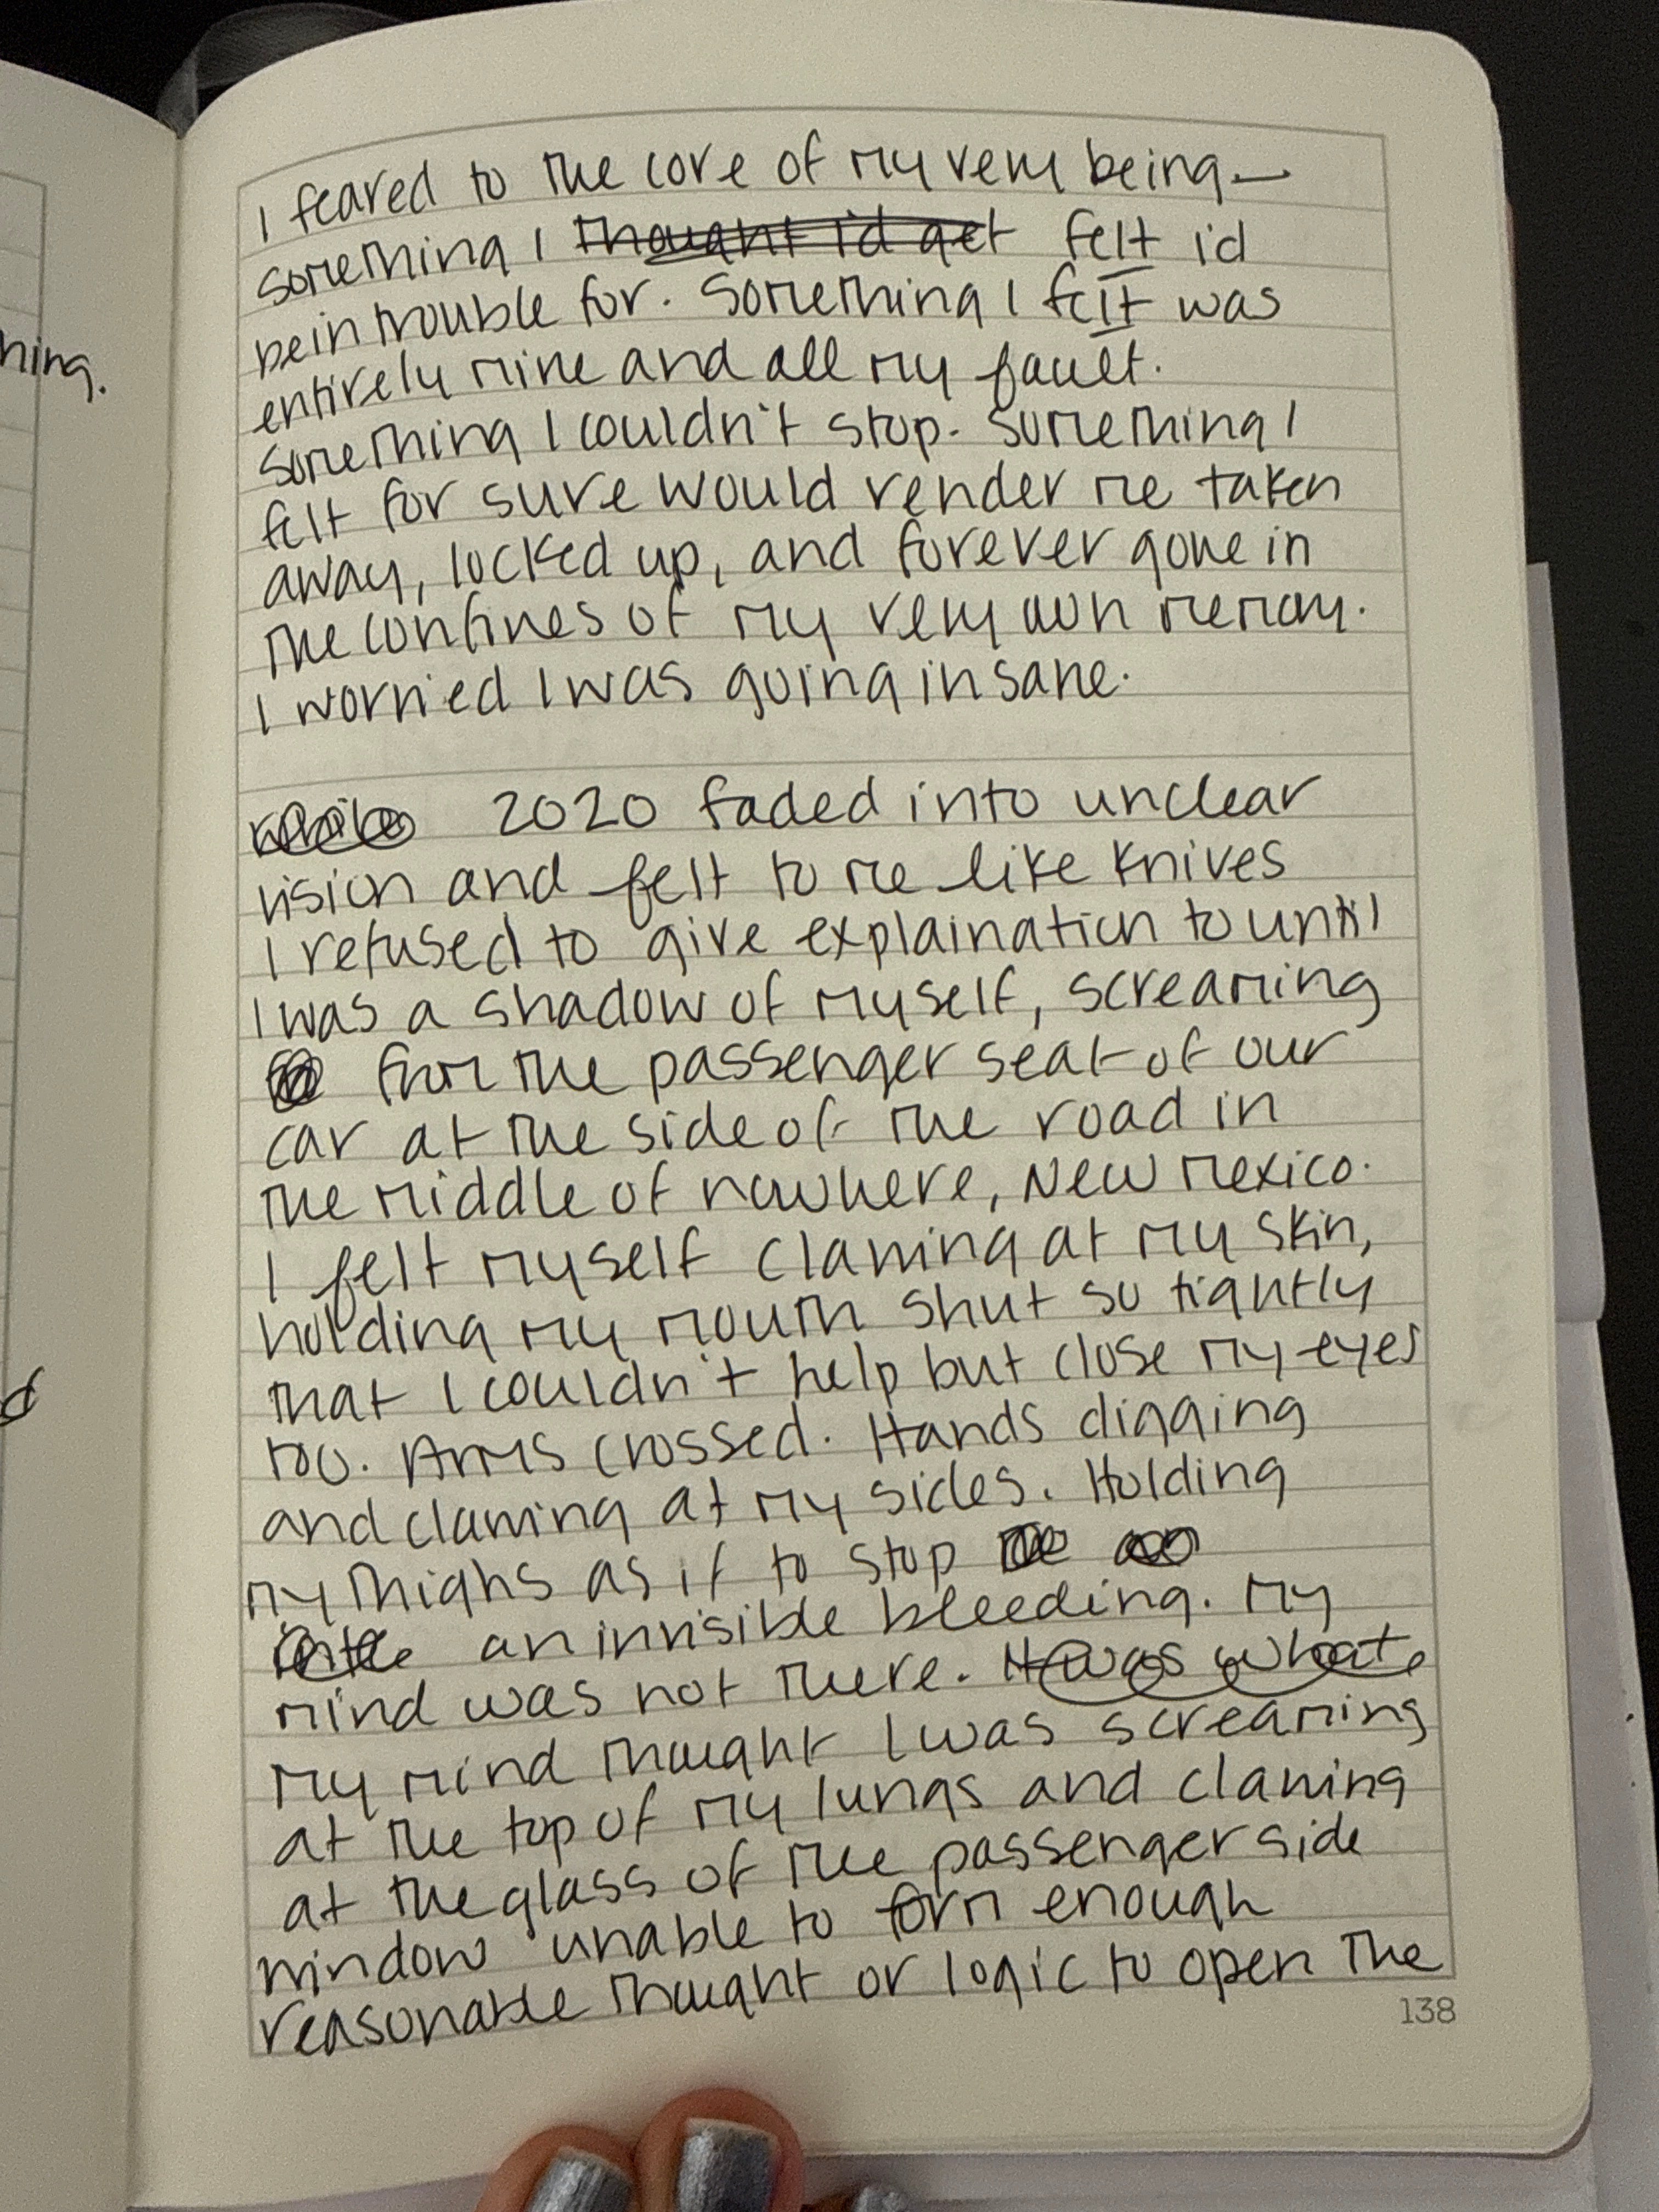 hing.
I feared to the core of my very being—
something I thought i'd get felt i'd
be in trouble for. Something I felt was
entirely mine and all my fault.
Something I couldn't stop. Something I
felt for sure would render me taken
away, locked up, and forever gone in
the confines of my very own memory.
I worried I was going insane.
while 2020 faded into unclear
vision and felt to me like knives
I refused to give explaination to until
I was a shadow of myself, screaming
from the passenger seat of our
car at the side of the road in
the middle of nowhere, New Mexico.
I felt myself clawing at my skin,
holding my mouth shut so tightly
that I couldn't help but close my eyes
too. Arms crossed. Hands digging
and clawing at my sides. Holding
my thighs as if to stop
an invisible bleeding. My
mind was not there. It was what
my mind thought I was screaming
at the top of my lungs and clawing
at the glass of the passenger side
window unable to form enough
reasonable thought or logic to open the
138